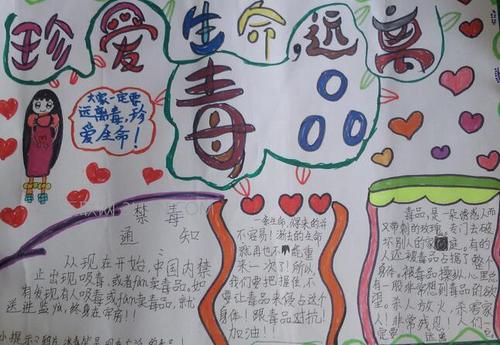 珍爱生命,远离
毒品
大家一定要
远离毒,珍
爱生命!
禁毒
通知
从现在开始,中国内禁
止出现吸毒,或者fan卖毒品,如
有发现有人吸毒或fan卖毒品,就
送进监狱,终身在牢房!!
一条生命,得来的并
不容易!逝去的生命
就再也不能重
来一次了!所以,
我们要把握住,不
要让毒品来侵占这个
身体!跟毒品对抗!
加油!
毒品,是一朵诱惑人而
又带刺的玫瑰,专门去破
坏别人的家庭,有的
人还被毒品占据了整个
身体,被毒品操纵,心里就
有一股非常想到毒品的欲
望,杀人放火,杀害家
人!非常残忍!人
定要远离
小提示: